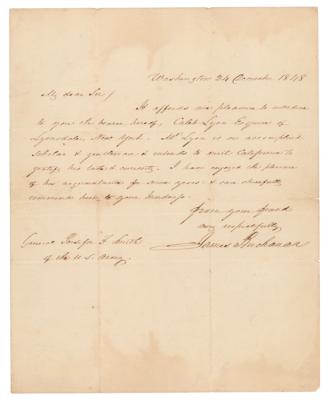 Washington 24 December 1848
My dear Sir/
It affords me pleasure to introduce
to you the bearer hereof, Caleb Lyon Esquire of
Lyonsdale, New York. Mr Lyon is an accomplished
scholar & gentleman & intends to visit California to
gratify his latent curiosity. I have enjoyed the pleasure
of his acquaintance for some years & can cheerfully
commend him to your kindness.
from your friend
very respectfully
James Buchanan
General Persifor F. Smith
of the U.S. Army.